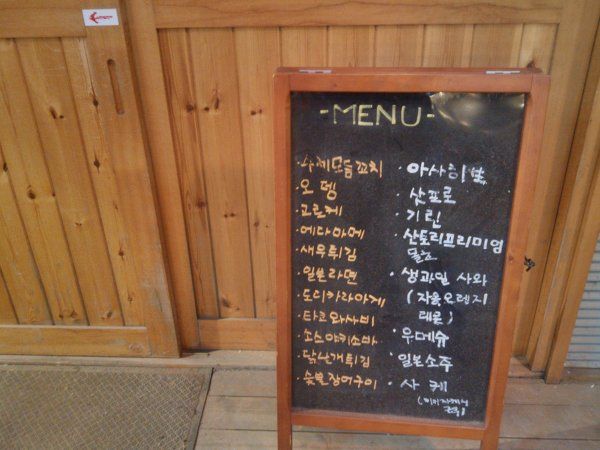 -MENU-
· 수제모듬꼬치
· 오뎅
· 고로케
· 에다마메
· 새우튀김
· 일본라면
· 도리카라아게
· 타코와사비
· 소스야키소바
· 닭날개튀김
· 숯불장어구이
· 아사히生
· 삿포로
· 기린
· 산토리프리미엄
몰츠
· 생과일 사와
(자몽오렌지
레몬)
· 우메슈
· 일본소주
· 사케